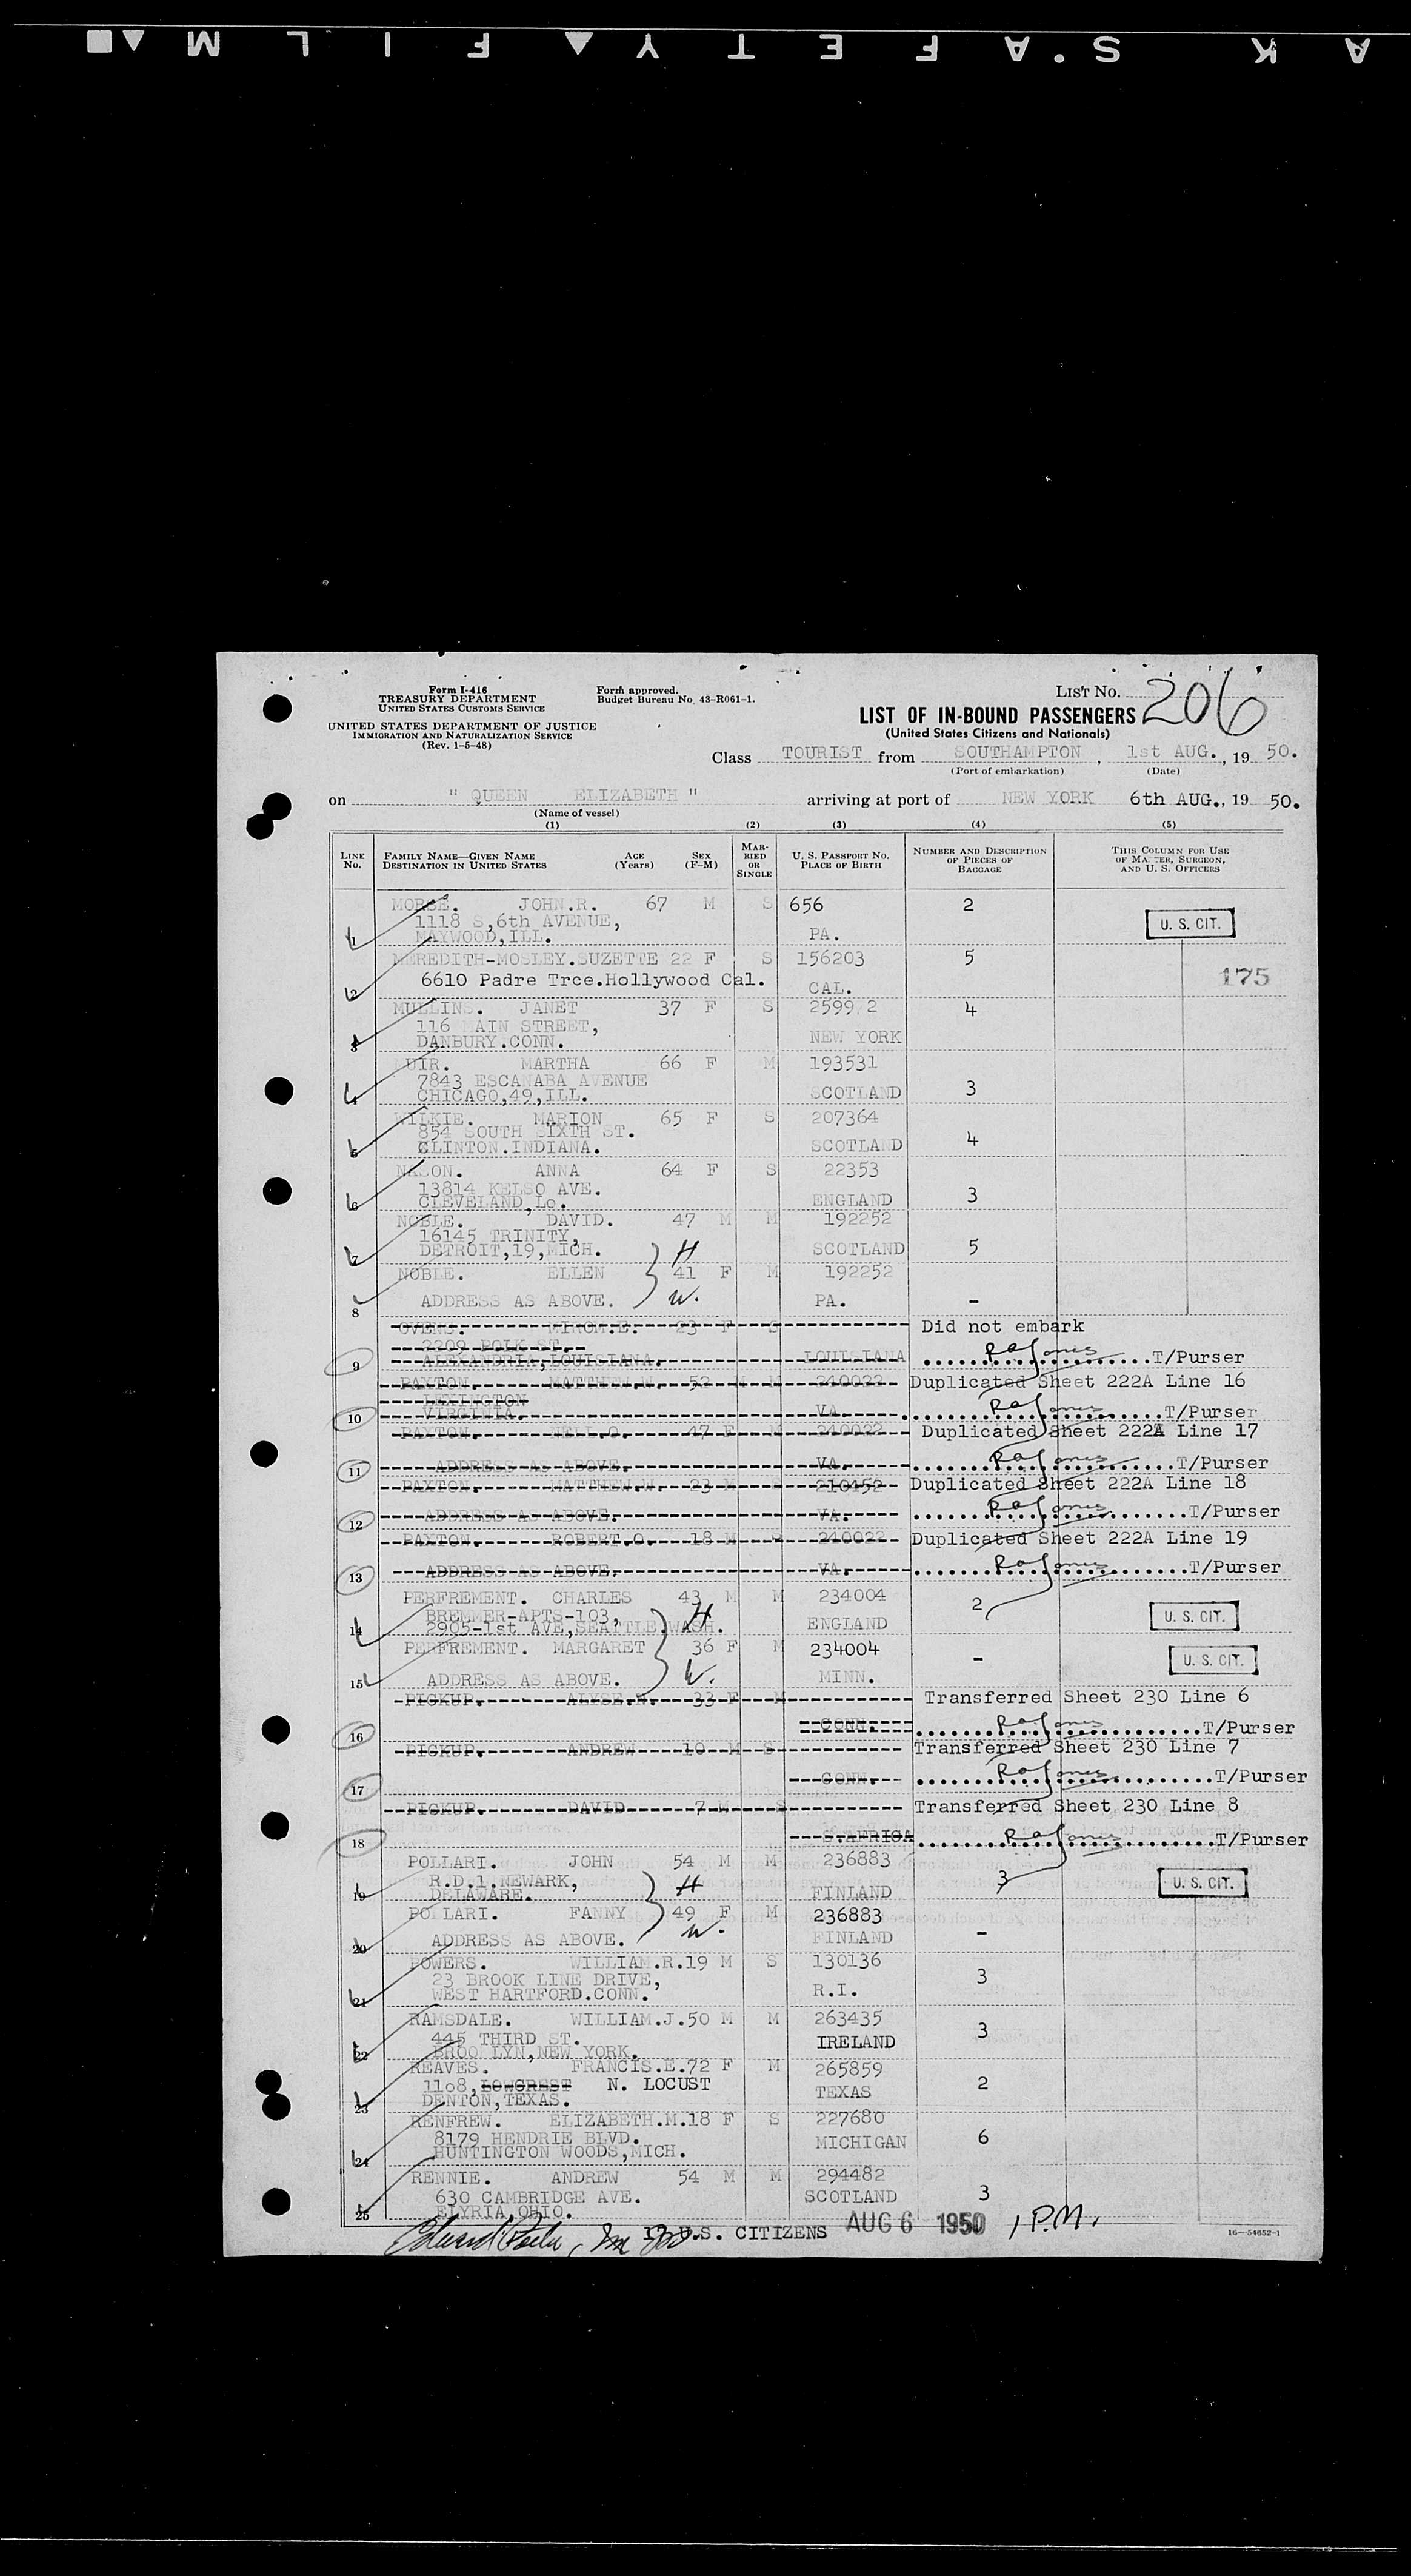 KA K S.A F E T Y ▲ F I L M ▲■
Form I-416
TREASURY DEPARTMENT
UNITED STATES CUSTOMS SERVICE
Form approved.
Budget Bureau No. 43-R061-1.
UNITED STATES DEPARTMENT OF JUSTICE
IMMIGRATION AND NATURALIZATION SERVICE
(Rev. 1-5-48)
LIST No. 206
LIST OF IN-BOUND PASSENGERS
(United States Citizens and Nationals)
Class TOURIST from SOUTHAMPTON , 1st AUG., 19 50.
(Port of embarkation) (Date)
on " QUEEN ELIZABETH " arriving at port of NEW YORK 6th AUG., 19 50.
(Name of vessel)
(1) (2) (3) (4) (5)
LINE No. FAMILY NAME—GIVEN NAME DESTINATION IN UNITED STATES AGE (Years) SEX (F-M) MARRIED OR SINGLE U. S. PASSPORT NO. PLACE OF BIRTH NUMBER AND DESCRIPTION OF PIECES OF BAGGAGE THIS COLUMN FOR USE OF MASTER, SURGEON, AND U. S. OFFICERS
MORSE. JOHN.R. 67 M S 656 2
1118 S,6th AVENUE, U. S. CIT.
1 MAYWOOD,ILL. PA.
MEREDITH-MOSLEY.SUZETTE 22 F S 156203 5
6610 Padre Trce.Hollywood Cal. 175
2 CAL.
MULLINS. JANET 37 F S 2599 2 4
116 MAIN STREET,
3 DANBURY.CONN. NEW YORK
MUIR. MARTHA 66 F M 193531
7843 ESCANABA AVENUE 3
4 CHICAGO,49,ILL. SCOTLAND
WILKIE. MARION 65 F S 207364
854 SOUTH SIXTH ST. 4
5 CLINTON.INDIANA. SCOTLAND
NASON. ANNA 64 F S 22353
13814 KELSO AVE. 3
6 CLEVELAND,Lo. ENGLAND
NOBLE. DAVID. 47 M M 192252
16145 TRINITY,
7 DETROIT,19,MICH. H SCOTLAND 5
NOBLE. ELLEN 41 F M 192252
8 ADDRESS AS ABOVE. W. PA. -
OVENS. 23 F S Did not embark
2209 POLK ST.
9 ALEXANDRIA,LOUISIANA. LOUISIANA RaJones T/Purser
PAXTON. MATTHEW.W. 52 M M 240022 Duplicated Sheet 222A Line 16
LEXINGTON
10 VIRGINIA. VA. RaJones T/Purser
PAXTON. NELL.O. 47 F M 240022 Duplicated Sheet 222A Line 17
11 ADDRESS AS ABOVE. VA. RaJones T/Purser
PAXTON. MATTHEW.W. 23 M 210452 Duplicated Sheet 222A Line 18
12 ADDRESS AS ABOVE. VA. RaJones T/Purser
PAXTON. ROBERT.O. 18 M S 240022 Duplicated Sheet 222A Line 19
13 ADDRESS AS ABOVE. VA. RaJones T/Purser
PERFREMENT. CHARLES 43 M M 234004 2
BREMMER-APTS-103, H U. S. CIT.
14 2905-1st AVE,SEATTLE.WASH. ENGLAND
PERFREMENT. MARGARET 36 F M 234004 - U. S. CIT.
15 ADDRESS AS ABOVE. W. MINN.
PICKUP. ALYSE.N. 33 F M Transferred Sheet 230 Line 6
16 CONN. RaJones T/Purser
PICKUP. ANDREW 10 M S Transferred Sheet 230 Line 7
17 CONN. RaJones T/Purser
PICKUP. DAVID 7 M S Transferred Sheet 230 Line 8
18 S.AFRICA RaJones T/Purser
POLLARI. JOHN 54 M M 236883
R.D.1.NEWARK, H 3 U. S. CIT.
19 DELAWARE. FINLAND
POLLARI. FANNY 49 F M 236883
20 ADDRESS AS ABOVE. W. FINLAND -
POWERS. WILLIAM.R.19 M S 130136
23 BROOK LINE DRIVE, 3
21 WEST HARTFORD.CONN. R.I.
RAMSDALE. WILLIAM.J.50 M M 263435
445 THIRD ST. 3
22 BROOKLYN,NEW YORK. IRELAND
REAVES. FRANCIS.E.72 F M 265859
1108,LOWCREST N. LOCUST 2
23 DENTON,TEXAS. TEXAS
RENFREW. ELIZABETH.M.18 F S 227680
8179 HENDRIE BLVD. 6
24 HUNTINGTON WOODS,MICH. MICHIGAN
RENNIE. ANDREW 54 M M 294482
630 CAMBRIDGE AVE. SCOTLAND 3
25 ELYRIA,OHIO.
17 U.S. CITIZENS AUG 6 1950 1 P.M. 16—54652-1